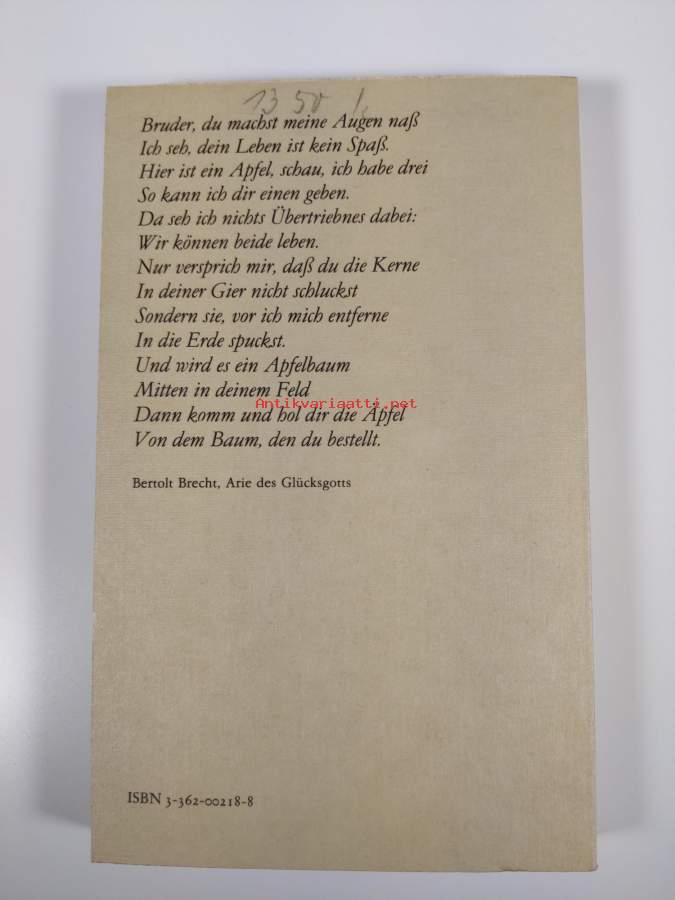 13 50
Bruder, du machst meine Augen naß
Ich seh, dein Leben ist kein Spaß.
Hier ist ein Apfel, schau, ich habe drei
So kann ich dir einen geben.
Da seh ich nichts Übertriebnes dabei:
Wir können beide leben.
Nur versprich mir, daß du die Kerne
In deiner Gier nicht schluckst
Sondern sie, vor ich mich entferne
In die Erde spuckst.
Und wird es ein Apfelbaum
Mitten in deinem Feld
Antikvariaatti.net
Dann komm und hol dir die Äpfel
Von dem Baum, den du bestellt.
Bertolt Brecht, Arie des Glücksgotts
ISBN 3-362-00218-8